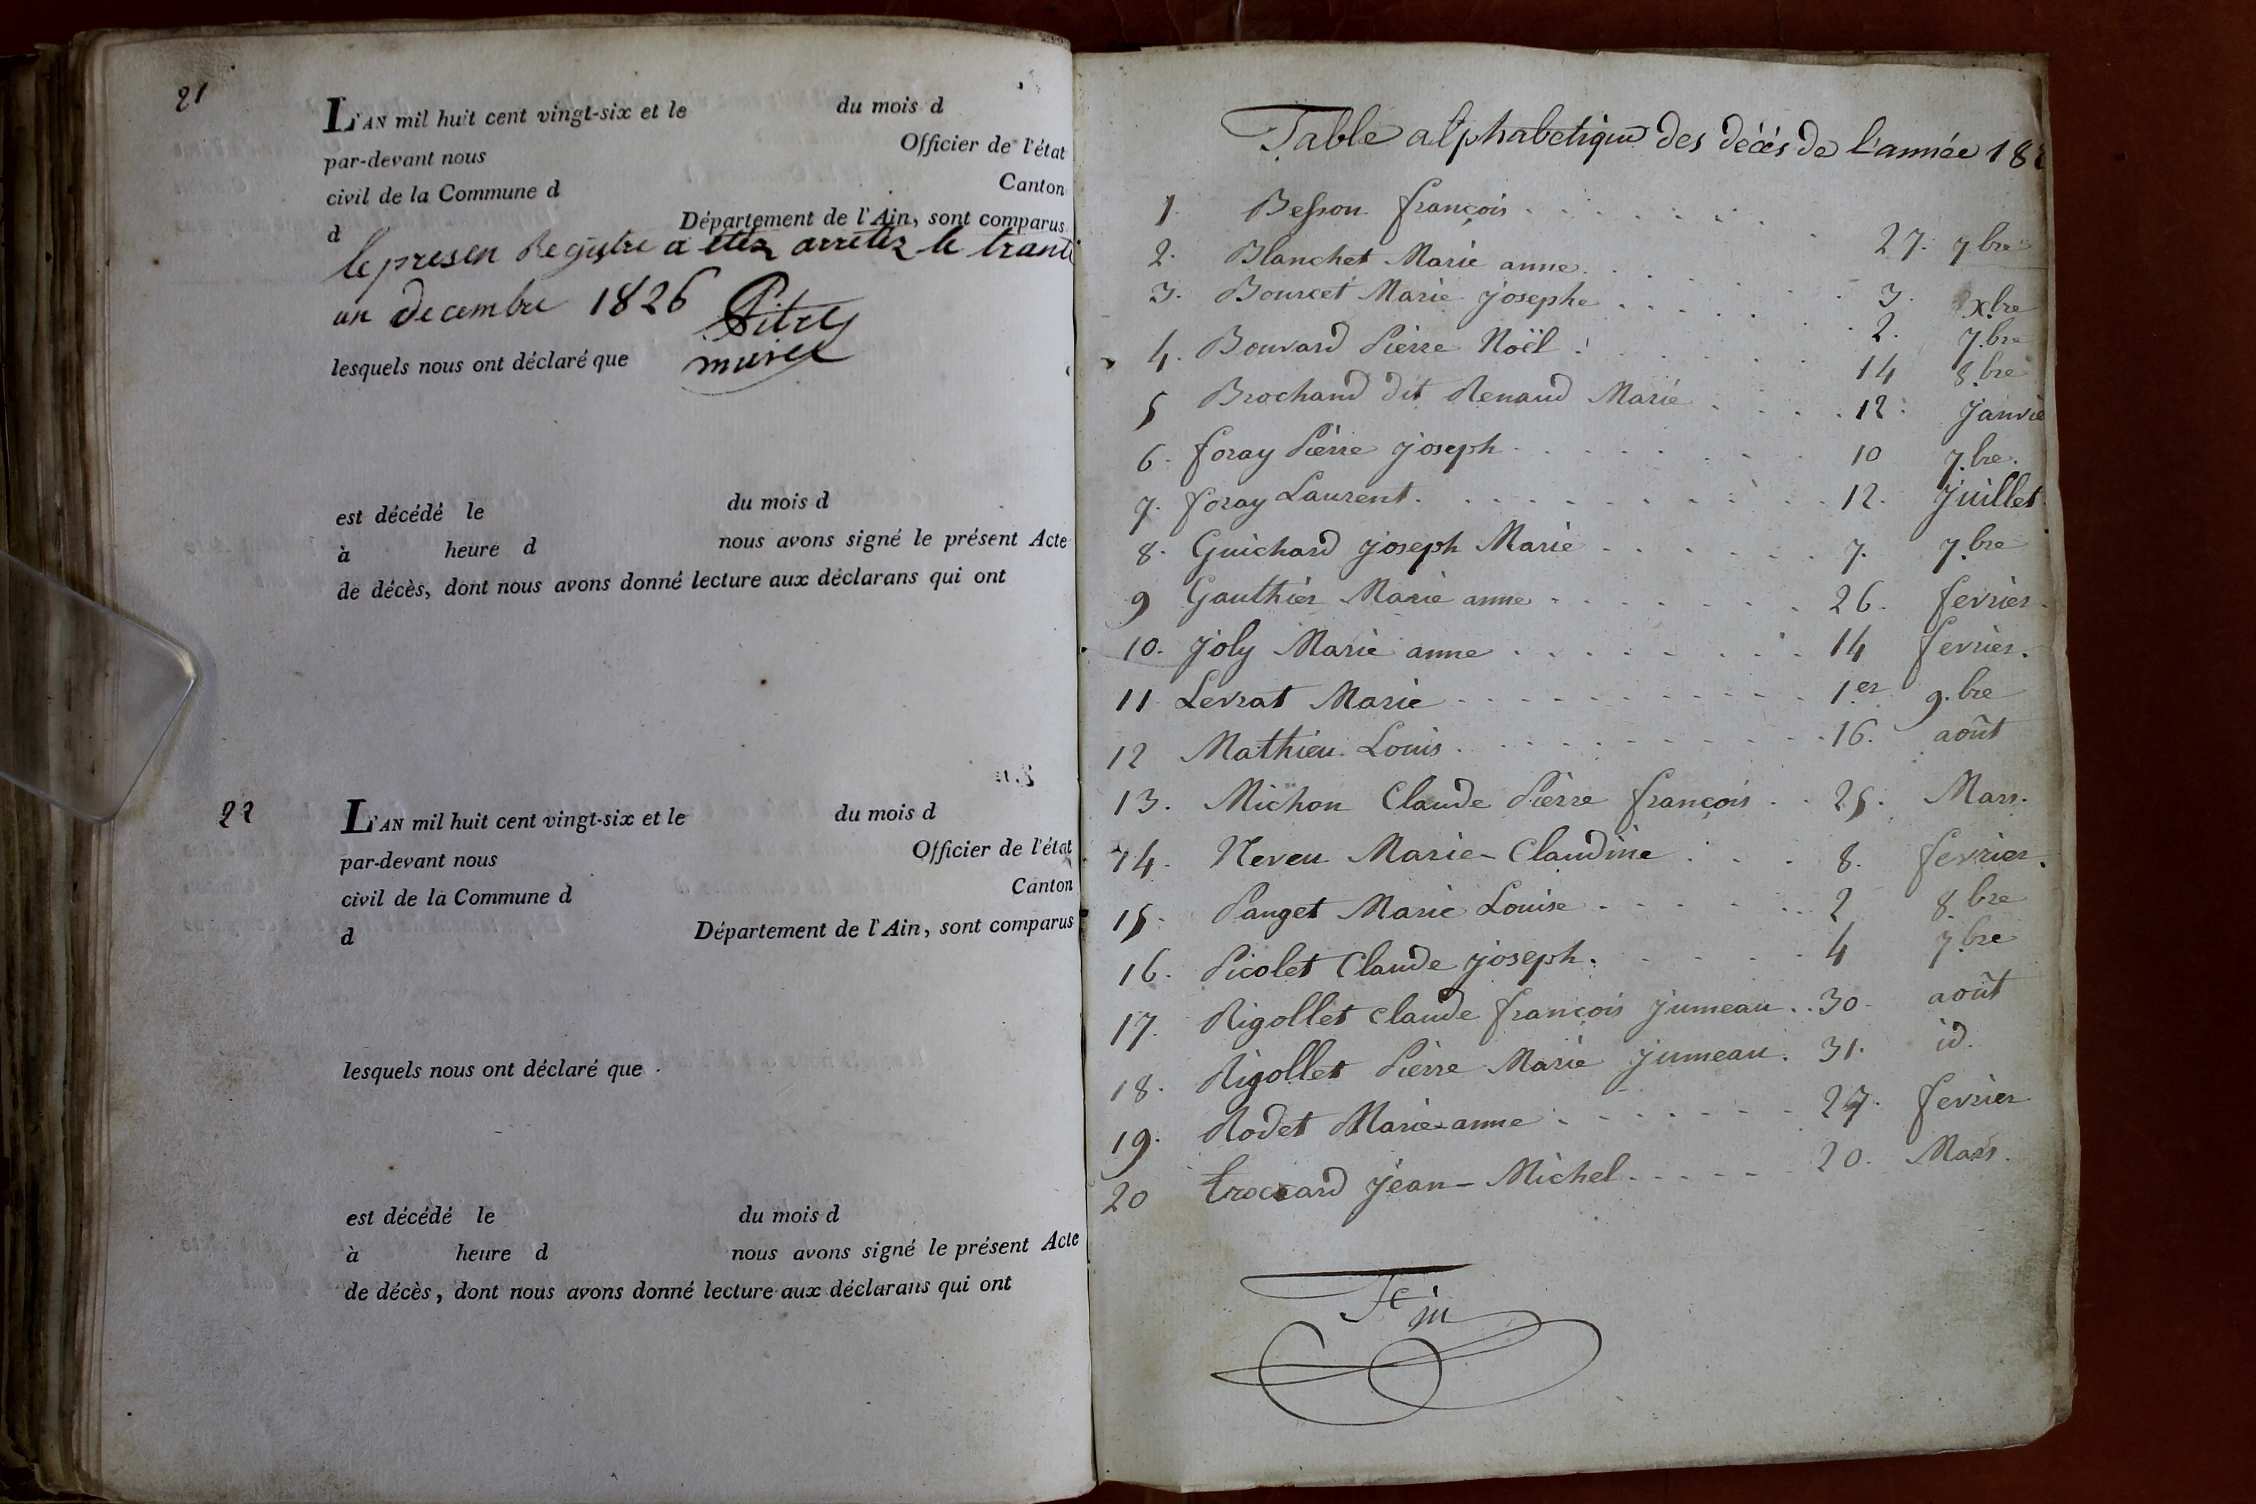 21
L'AN mil huit cent vingt-six et le du mois d
par-devant nous Officier de l'état
civil de la Commune d Canton
d Département de l'Ain, sont comparus
le presen Registre a etez arretez le trant
un decembre 1826
lesquels nous ont déclaré que
est décédé le du mois d
à heure d nous avons signé le présent Acte
de décès, dont nous avons donné lecture aux déclarans qui ont
22
L'AN mil huit cent vingt-six et le du mois d
par-devant nous Officier de l'état
civil de la Commune d Canton
d Département de l'Ain, sont comparus
lesquels nous ont déclaré que
est décédé le du mois d
à heure d nous avons signé le présent Acte
de décès, dont nous avons donné lecture aux déclarans qui ont
Table alphabetique des décés de l'année 182
1. Besson françois . . . . 27. 7bre
2. Blanchet Marie anne . . . . 3. Xbre
3. Bourcet Marie josephe . . . . 2. 7.bre
4. Bouvard Pierre Noël . . . . 14 8.bre
5 Brochand dit Renaud Marie . . . . 12. janvie
6. foray Pierre joseph . . . . 10 7.bre.
7. foray Laurent . . . . 12. juillet
8. Guichard joseph Marie . . . . 7. 7.bre
9 Gauthier Marie anne . . . . 26. fevrier.
10. joly Marie anne . . . . 14 fevrier.
11 Levrat Marie . . . . 1.er 9.bre
12 Mathieu Louis . . . . 16. août
13. Michon Claude Pierre françois . . 25. Mars.
14. Neveu Marie-Claudine . . . 8. fevrier.
15. Panget Marie Louise . . . . 2 8.bre
16. Picolet Claude joseph . . . . 4 7.bre
17. Rigollet claude françois jumeau . . 30. août
18. Rigollet Pierre Marie jumeau . 31. id.
19. Rodet Marie-anne . . . . 27. fevrier
20 troccard jean-Michel . . . . 20. Mars.
Fin